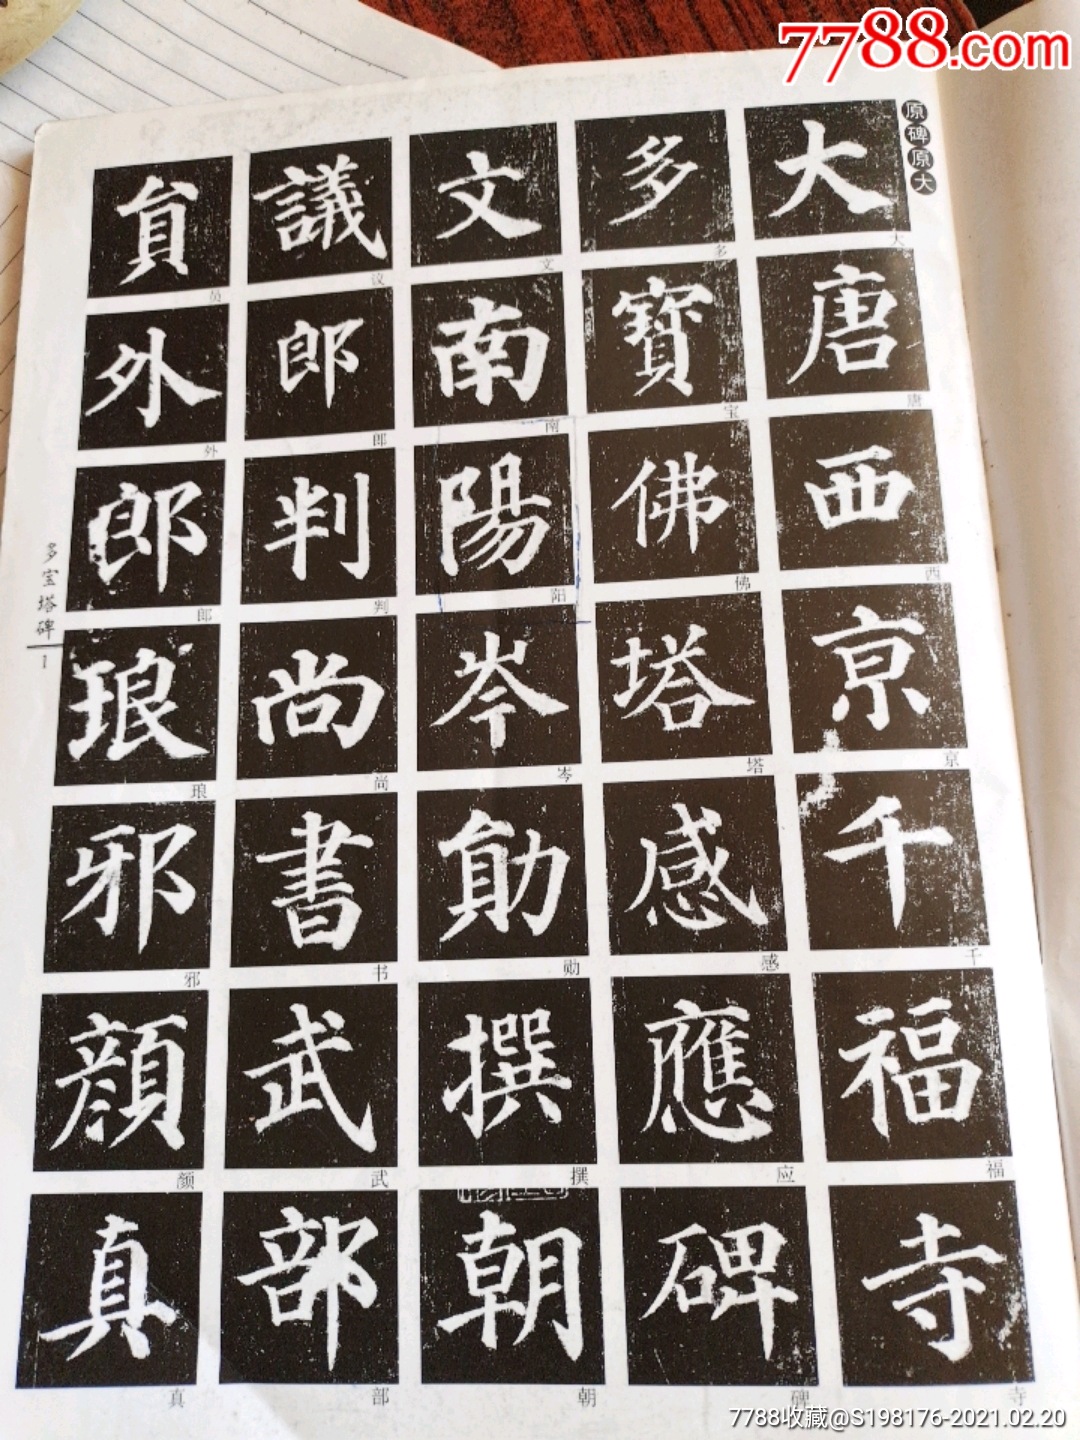 7788.com
原碑原大
大唐西京千福寺
大唐西京千福寺
多寶佛塔感應碑
多宝佛塔感应碑
文南陽岑勛撰朝
文南阳岑勋撰朝
議郎判尚書武部
议郎判尚书武部
員外郎琅邪顏真
员外郎琅邪颜真
多宝塔碑
1
7788收藏@S198176-2021.02.20